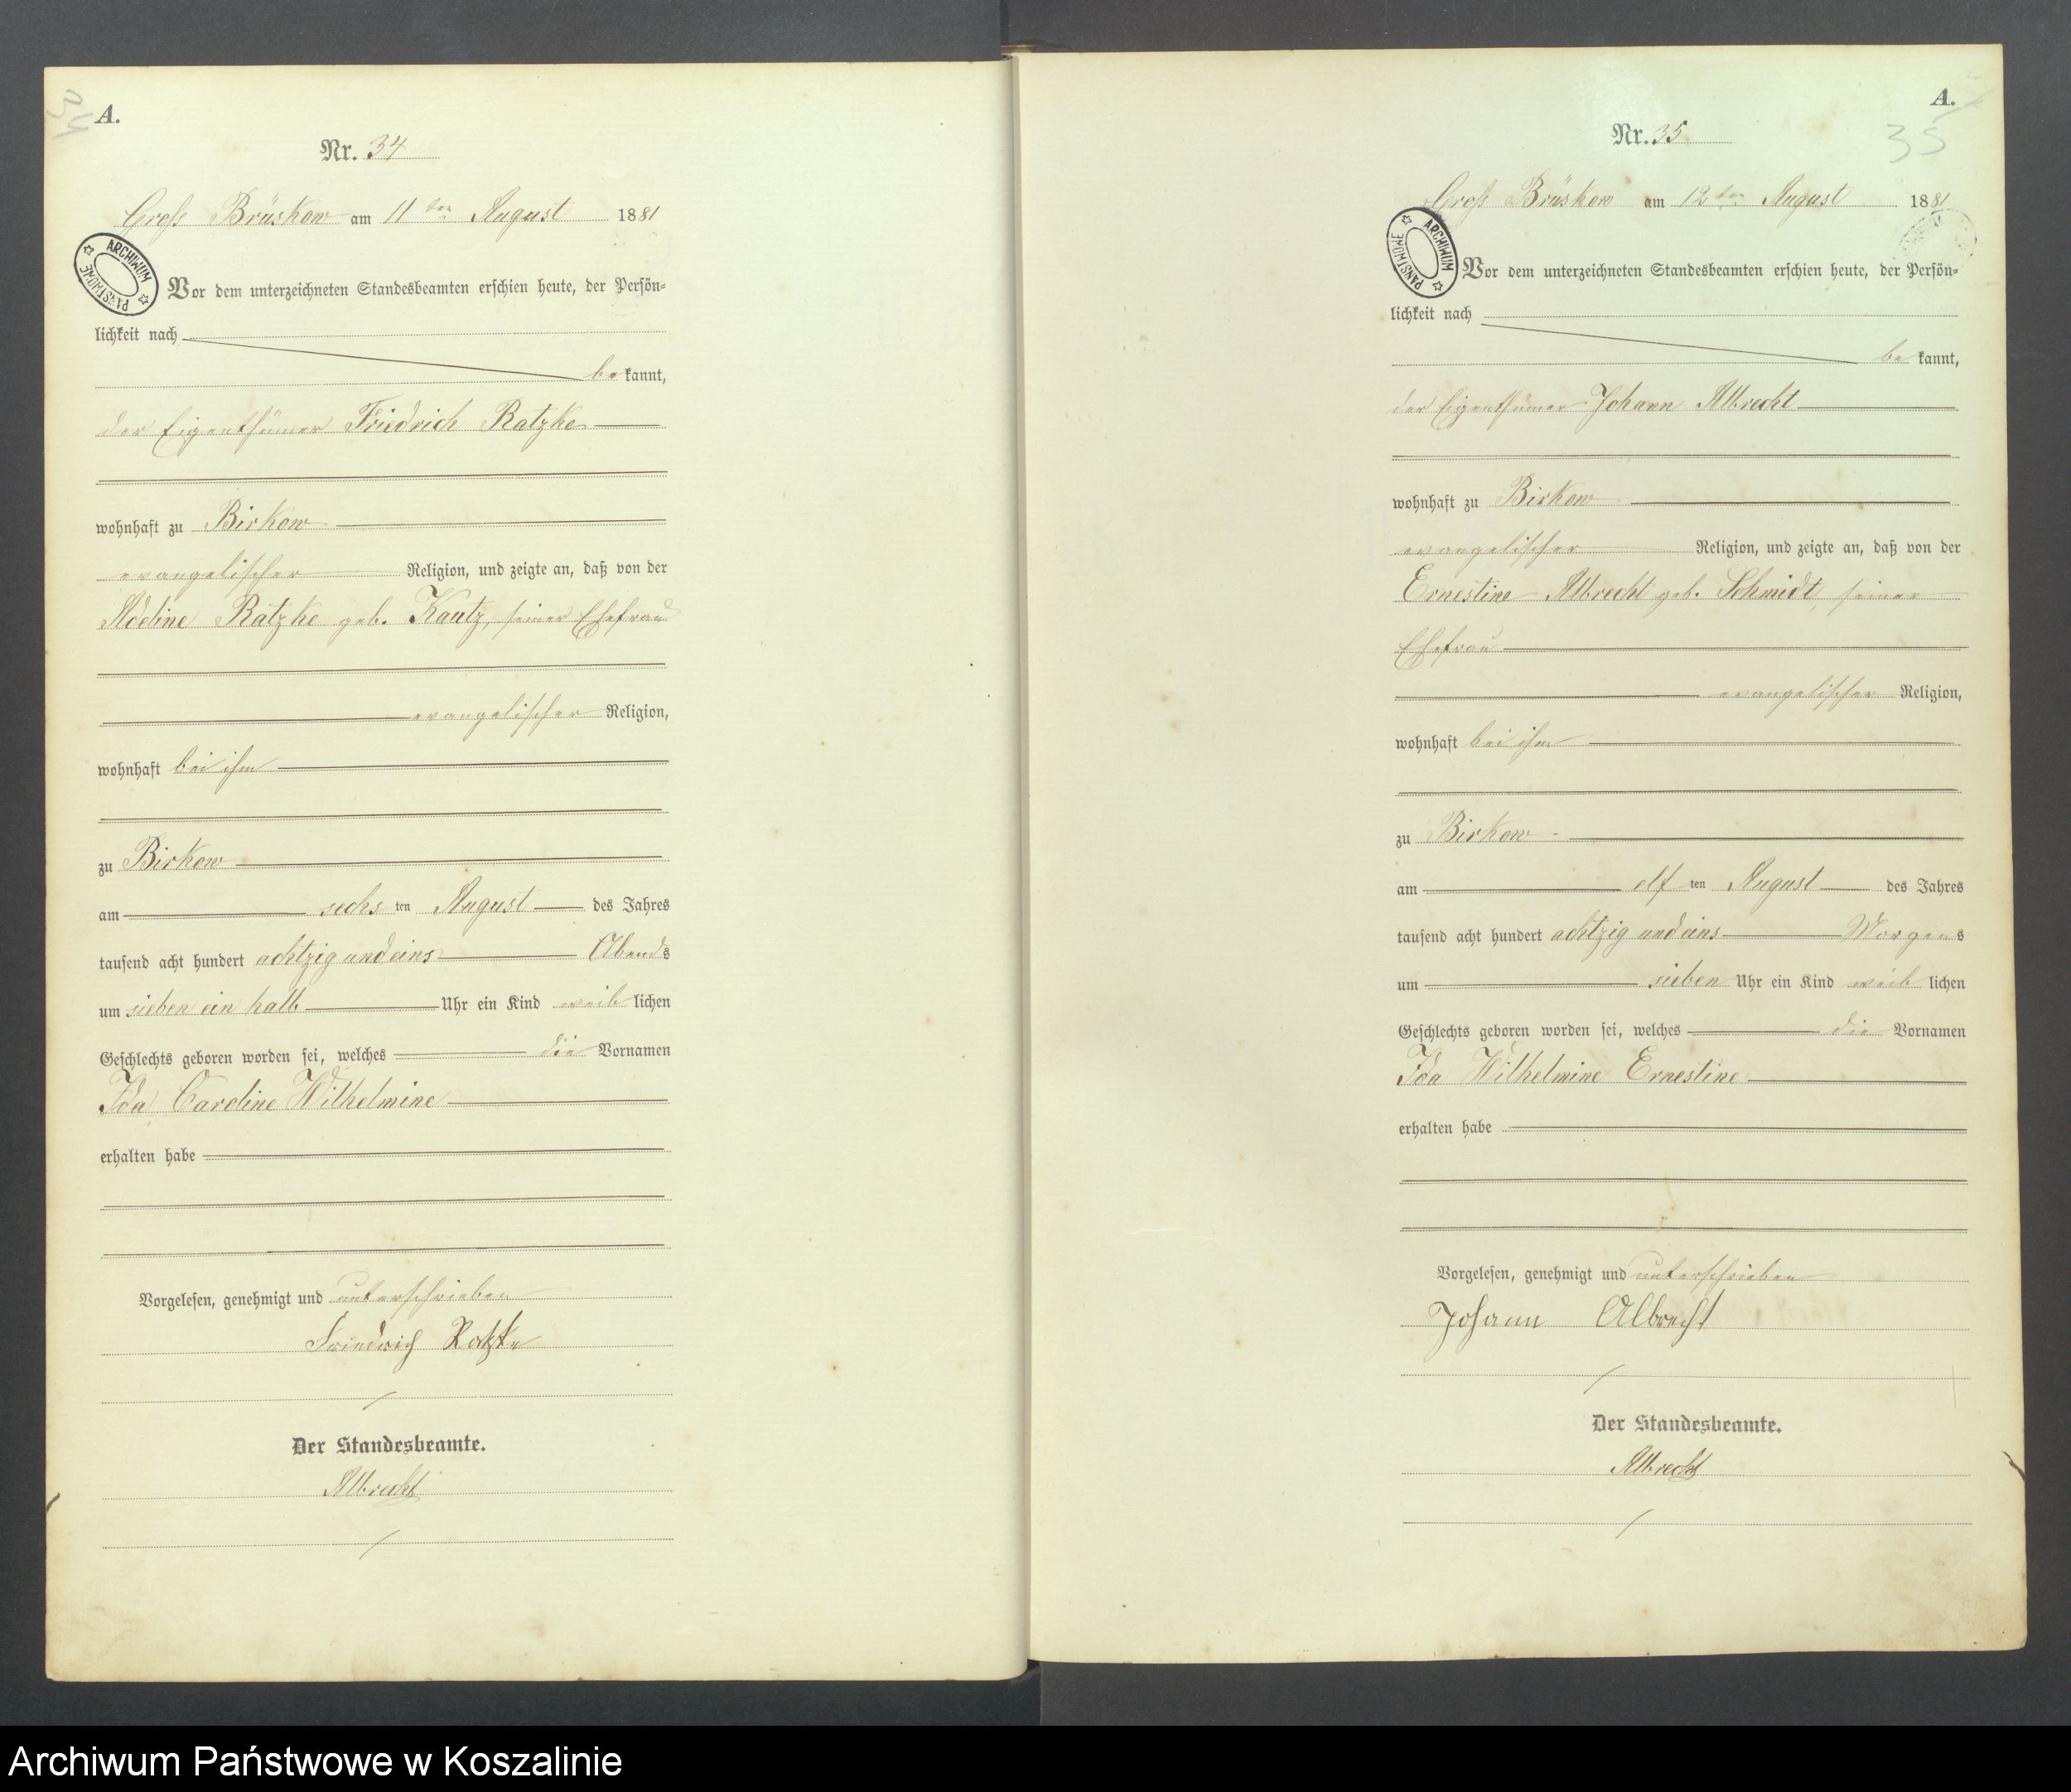 34
A.
Nr. 34
Groß Brüskow am 11ten August 1881
ARCHIWUM PAŃSTWOWE
Vor dem unterzeichneten Standesbeamten erschien heute, der Persön-
lichkeit nach
be kannt,
der Eigenthümer Friedrich Ratzke
wohnhaft zu Birkow
evangelischer Religion, und zeigte an, daß von der
Adeline Ratzke geb. Kautz, seiner Ehefrau
evangelischer Religion,
wohnhaft bei ihm
zu Birkow
am sechs ten August des Jahres
tausend acht hundert achtzig und eins Abends
um sieben ein halb Uhr ein Kind weib lichen
Geschlechts geboren worden sei, welches die Vornamen
Ida Caroline Wilhelmine
erhalten habe
Vorgelesen, genehmigt und unterschrieben
Friedrich Ratzke
Der Standesbeamte.
Albrecht
A.
35
Nr. 35
Groß Brüskow am 12ten August 1881
ARCHIWUM PAŃSTWOWE
Vor dem unterzeichneten Standesbeamten erschien heute, der Persön-
lichkeit nach
be kannt,
der Eigenthümer Johann Albrecht
wohnhaft zu Birkow
evangelischer Religion, und zeigte an, daß von der
Ernestine Albrecht geb. Schmidt, seiner
Ehefrau
evangelischer Religion,
wohnhaft bei ihm
zu Birkow
am elf ten August des Jahres
tausend acht hundert achtzig und eins Morgens
um sieben Uhr ein Kind weib lichen
Geschlechts geboren worden sei, welches die Vornamen
Ida Wilhelmine Ernestine
erhalten habe
Vorgelesen, genehmigt und unterschrieben
Johann Albrecht
Der Standesbeamte.
Albrecht
Archiwum Państwowe w Koszalinie